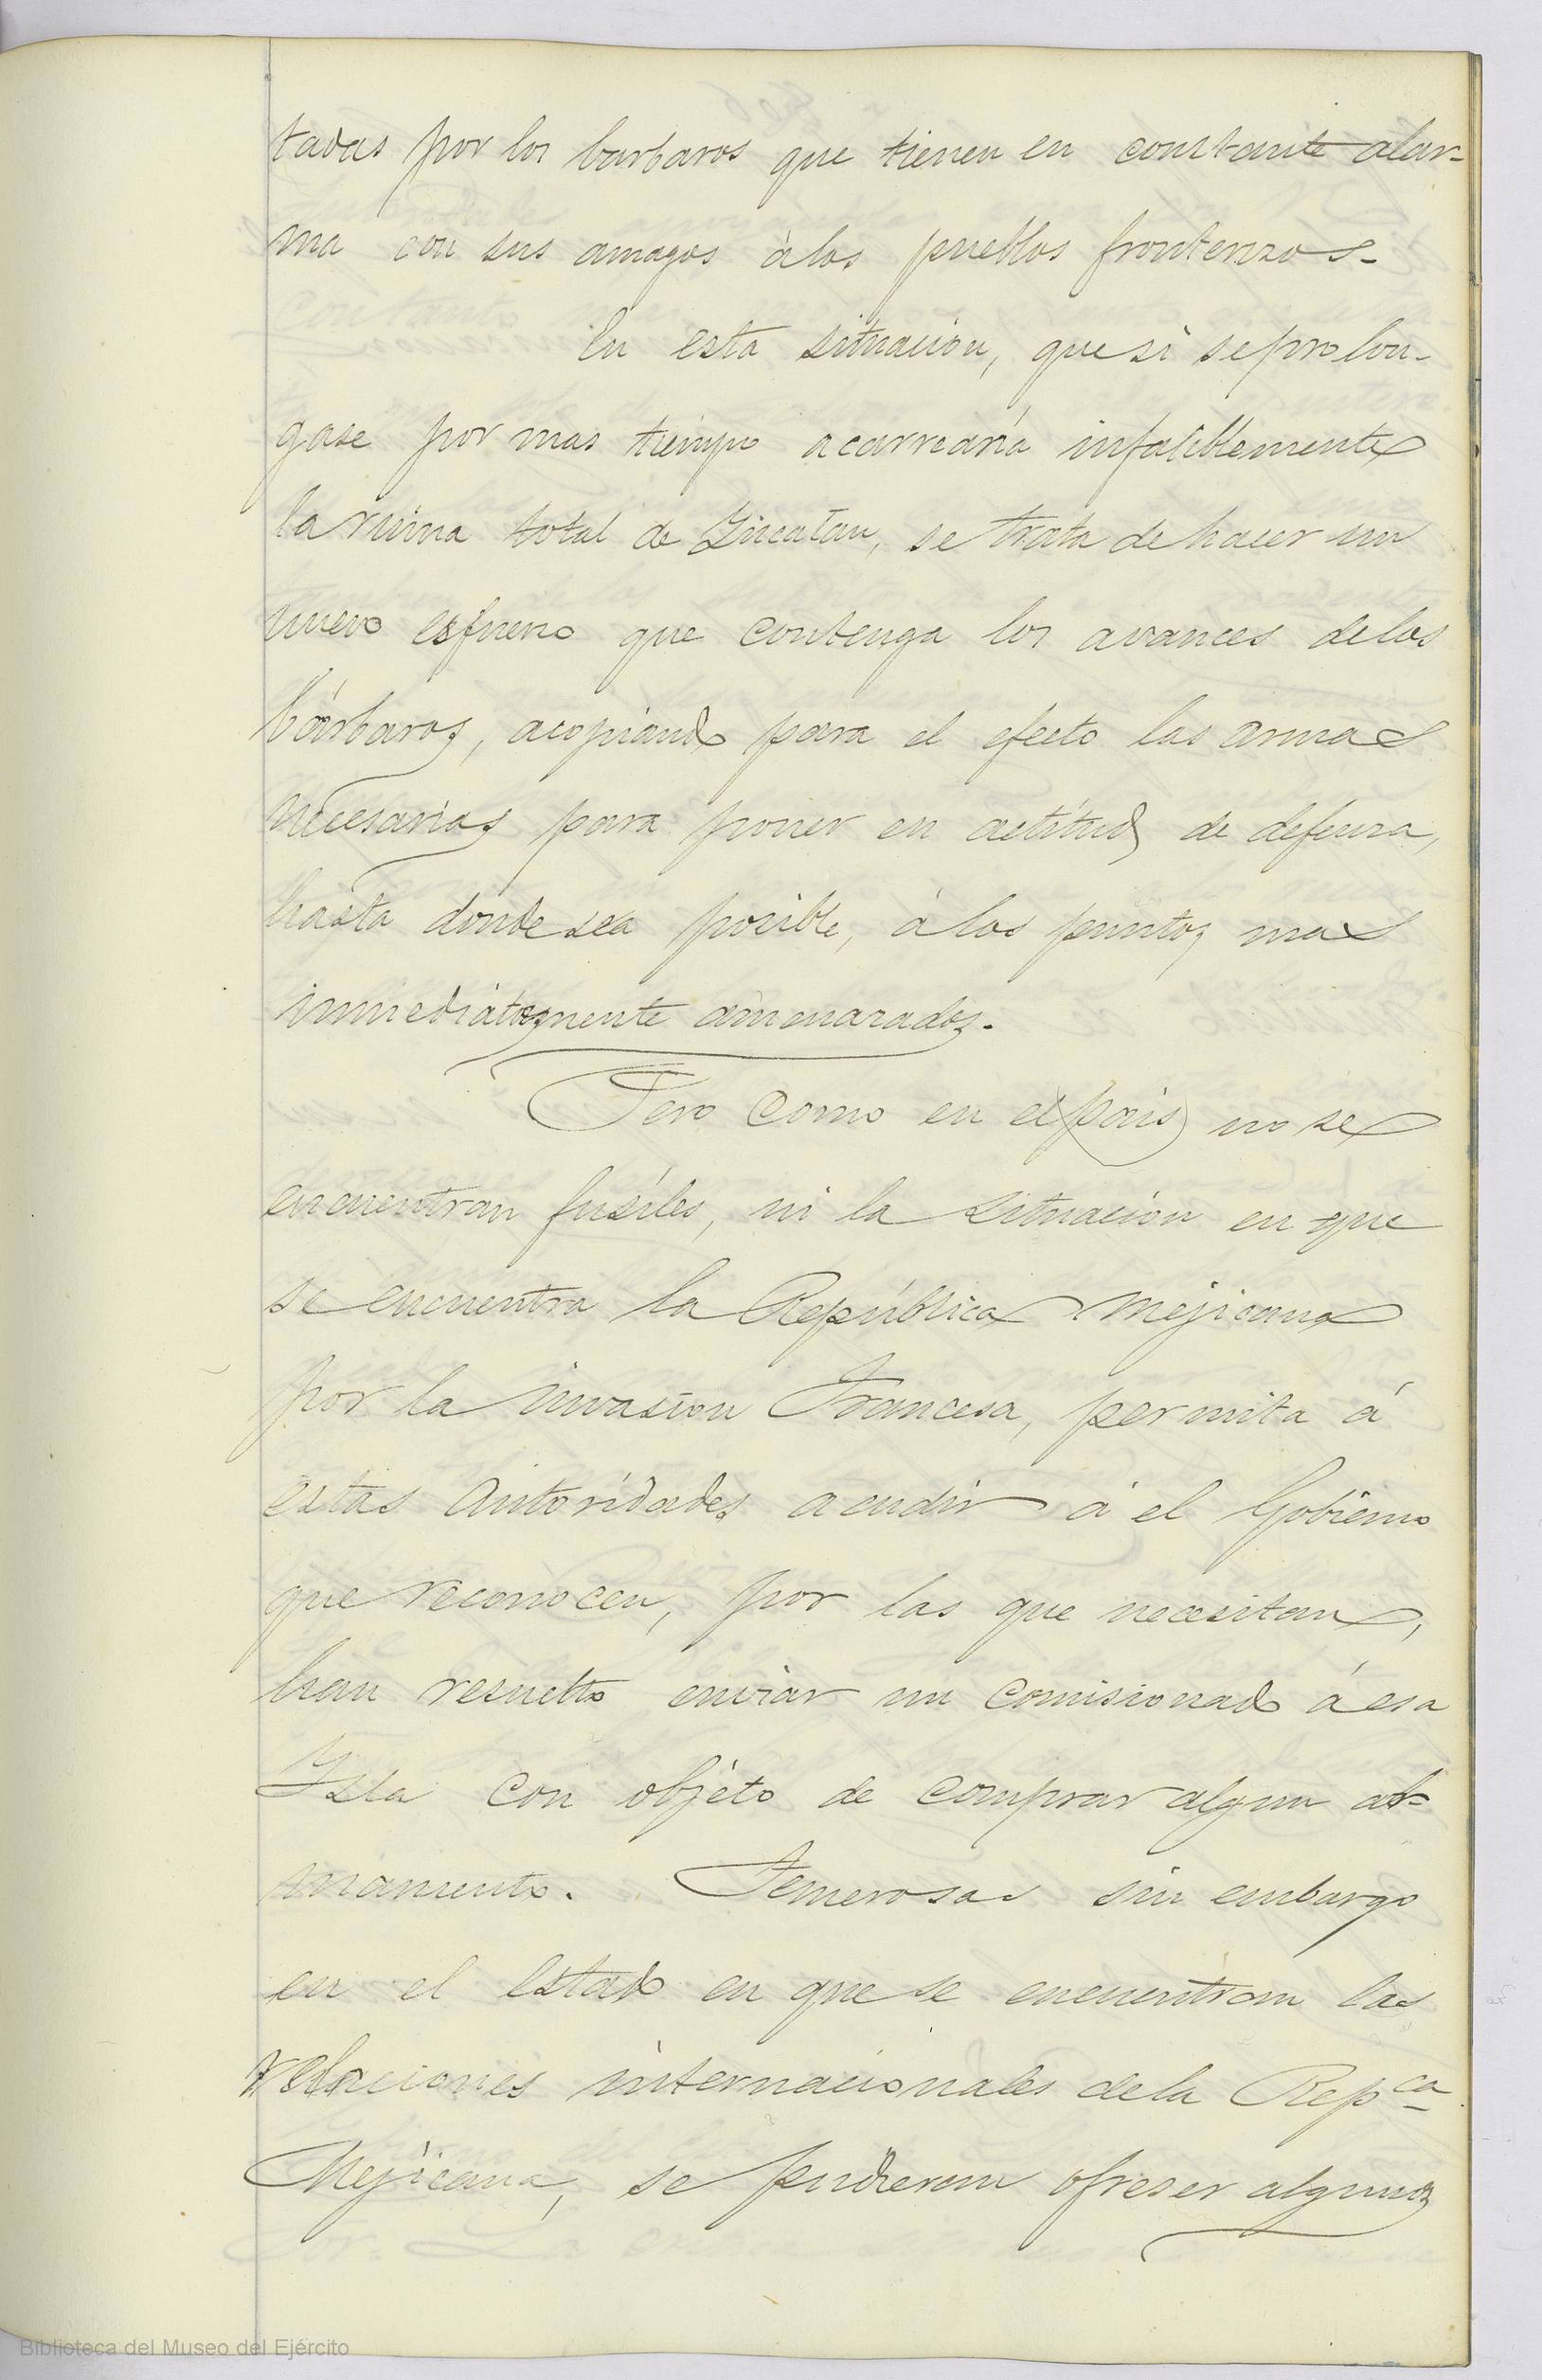 tadas por los barbaros que tienen en constante alar-
ma con sus amagos á los pueblos fronterizos.
En esta situacion, que si se prolon-
gase por mas tiempo acarrearia infaliblemente
la ruina total de Yucatan, se trata de hacer un
nuevo esfuerzo que contenga los avances de los
bárbaros, acopiando para el efecto las armas
necesarias para poner en actitud de defensa,
hasta donde sea posible, á los puntos mas
inmediatamente amenazados.
Pero como en el pais no se
encuentran fusiles, ni la situacion en que
se encuentra la República Mejicana
por la invasion Francesa, permita á
estas autoridades acudir á el Gobierno
que reconocen, por las que necesitan,
han resuelto enviar un comisionado á esa
Isla con objeto de comprar algun ar-
mamento. Temerosas sin embargo
en el estado en que se encuentran las
relaciones internacionales de la Repca
Mejicana, se pudieran ofreser algunos
Biblioteca del Museo del Ejército